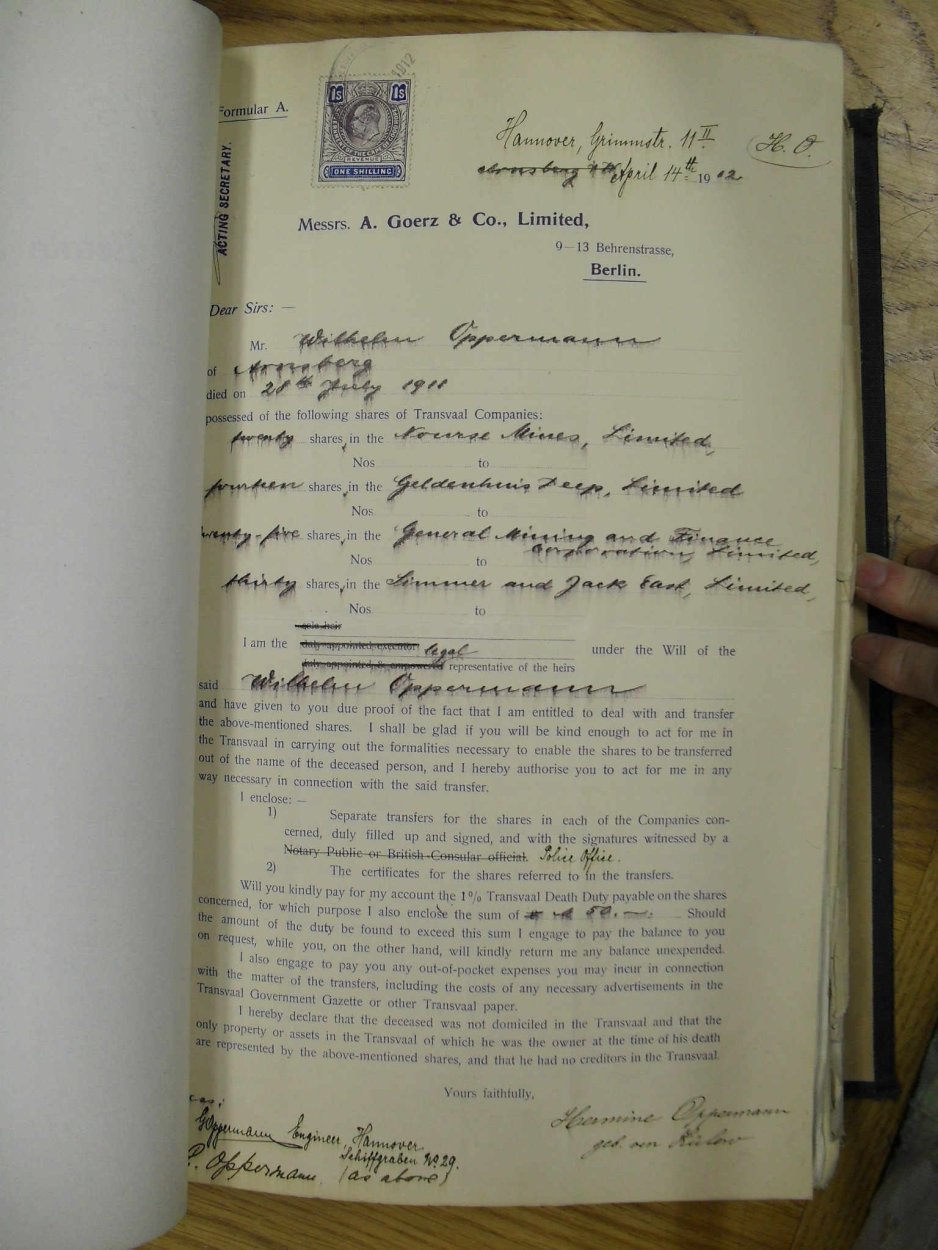 Formular A.
1912
1S 1S
REVENUE
ONE SHILLING
ACTING SECRETARY.
Hannover, Grimmstr. 11 II
H. O.
Arnsberg April 14th 1912
Messrs. A. Goerz & Co., Limited,
9—13 Behrenstrasse,
Berlin.
Dear Sirs: —
Mr. Wilhelm Oppermann
of Arnsberg
died on 28th July 1911
possessed of the following shares of Transvaal Companies:
twenty shares, in the Nourse Mines, Limited,
Nos to
fourteen shares, in the Geldenhuis Deep, Limited
Nos to
twenty-five shares, in the General Mining and Finance
Corporation, Limited,
Nos to
thirty shares, in the Simmer and Jack East, Limited,
Nos to
sole heir
I am the duly appointed executor legal under the Will of the
duly appointed & empowered representative of the heirs
said Wilhelm Oppermann
and have given to you due proof of the fact that I am entitled to deal with and transfer
the above-mentioned shares. I shall be glad if you will be kind enough to act for me in
the Transvaal in carrying out the formalities necessary to enable the shares to be transferred
out of the name of the deceased person, and I hereby authorise you to act for me in any
way necessary in connection with the said transfer.
I enclose: —
1) Separate transfers for the shares in each of the Companies con-
cerned, duly filled up and signed, and with the signatures witnessed by a
Notary Public or British Consular official. Police Office.
2) The certificates for the shares referred to in the transfers.
Will you kindly pay for my account the 1% Transvaal Death Duty payable on the shares
concerned, for which purpose I also enclose the sum of 50.—. Should
the amount of the duty be found to exceed this sum I engage to pay the balance to you
on request, while you, on the other hand, will kindly return me any balance unexpended.
I also engage to pay you any out-of-pocket expenses you may incur in connection
with the matter of the transfers, including the costs of any necessary advertisements in the
Transvaal Government Gazette or other Transvaal paper.
I hereby declare that the deceased was not domiciled in the Transvaal and that the
only property or assets in the Transvaal of which he was the owner at the time of his death
are represented by the above-mentioned shares, and that he had no creditors in the Transvaal
Yours faithfully,
Hermine Oppermann
geb. von Bülow
Oppermann Engineer, Hannover
Schiffgraben No 29.
Oppermann. (as above)